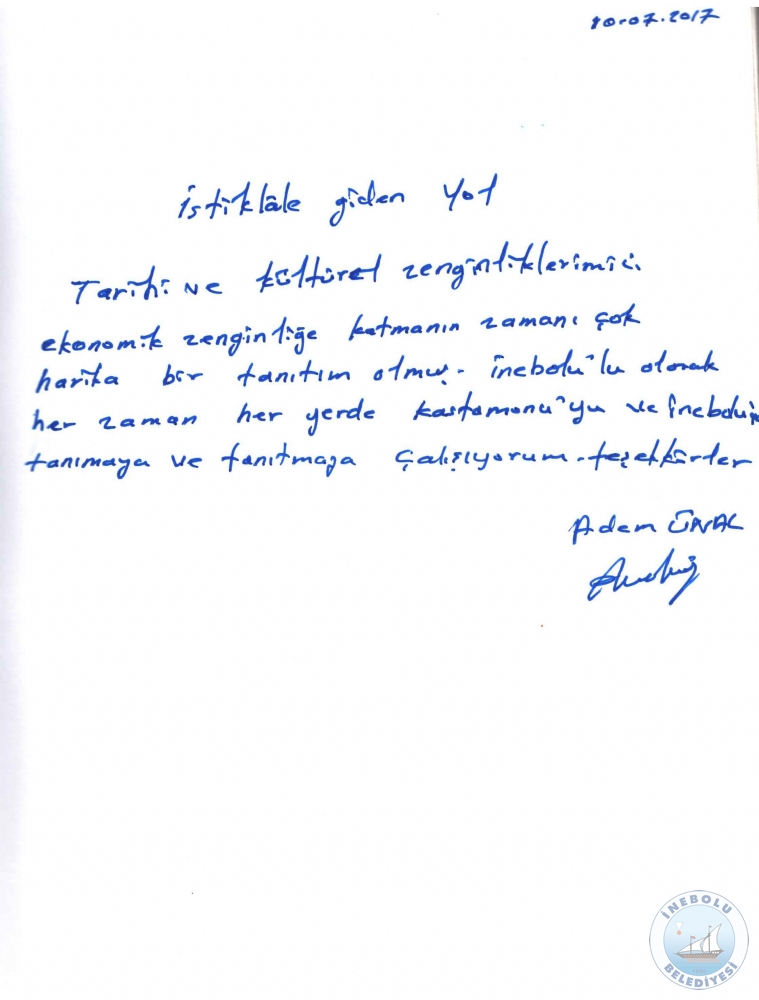 10.07.2017
İstiklâle giden Yol
Tarihi ve kültürel zenginliklerimizi
ekonomik zenginliğe katmanın zamanı çok
harika bir tanıtım olmuş. İnebolu'lu olarak
her zaman her yerde Kastamonu'yu ve İnebolu'yu
tanımaya ve tanıtmaya çalışıyorum. teşekkürler
Adem ÜNAL
İNEBOLU
BELEDİYESİ